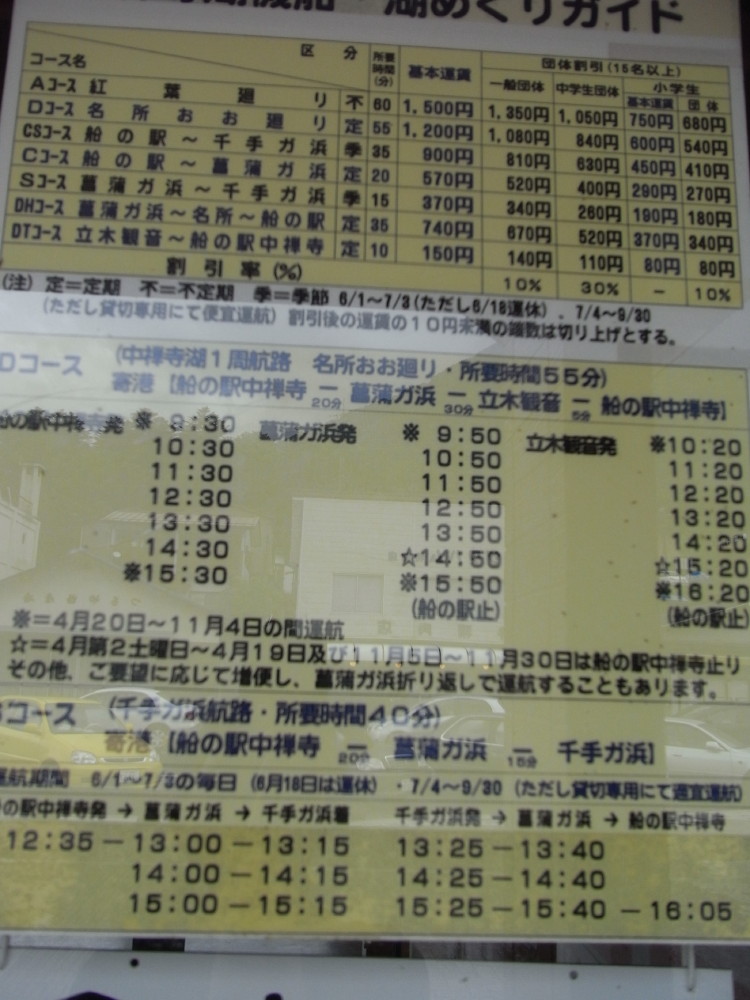 湖めぐりガイド
コース名 区分 所要時間(分) 基本運賃 団体割引(15名以上)
一般団体 中学生団体 小学生
基本運賃 団体
Aコース 紅葉廻り 不 60 1,500円 1,350円 1,050円 750円 680円
Dコース 名所おお廻り 定 55 1,200円 1,080円 840円 600円 540円
CSコース 船の駅～千手ガ浜 季 35 900円 810円 630円 450円 410円
Cコース 船の駅～菖蒲ガ浜 定 20 570円 520円 400円 290円 270円
Sコース 菖蒲ガ浜～千手ガ浜 季 15 370円 340円 260円 190円 180円
DHコース 菖蒲ガ浜～名所～船の駅 定 35 740円 670円 520円 370円 340円
DTコース 立木観音～船の駅中禅寺 定 10 150円 140円 110円 80円 80円
割引率(%) 10% 30% － 10%
(注) 定=定期 不=不定期 季=季節 6/1～7/3(ただし6/18運休)．7/4～9/30
(ただし貸切専用にて便宜運航) 割引後の運賃の10円未満の端数は切り上げとする。
Dコース (中禅寺湖1周航路 名所おお廻り・所要時間55分)
寄港【船の駅中禅寺 ー 20分 菖蒲ガ浜 ー 30分 立木観音 ー 5分 船の駅中禅寺】
の駅中禅寺発 ※ 9:30 菖蒲ガ浜発 ※ 9:50 立木観音発 ※10:20
10:30 10:50 11:20
11:30 11:50 12:20
12:30 12:50 13:20
13:30 13:50 14:20
14:30 ☆14:50 ☆15:20
※15:30 ※15:50 ※16:20
(船の駅止) (船の駅止)
※=4月20日～11月4日の間運航
☆=4月第2土曜日～4月19日及び11月5日～11月30日は船の駅中禅寺止り
その他、ご要望に応じて増便し、菖蒲ガ浜折り返しで運航することもあります。
Sコース (千手ガ浜航路・所要時間40分)
寄港【船の駅中禅寺 ー 20分 菖蒲ガ浜 ー 15分 千手ガ浜】
運航期間 6/1～7/3の毎日 (6月18日は運休)・7/4～9/30 (ただし貸切専用にて適宜運航)
の駅中禅寺発 → 菖蒲ガ浜 → 千手ガ浜着 千手ガ浜発 → 菖蒲ガ浜 → 船の駅中禅寺
12:35－13:00－13:15 13:25－13:40
14:00－14:15 14:25－14:40
15:00－15:15 15:25－15:40－16:05